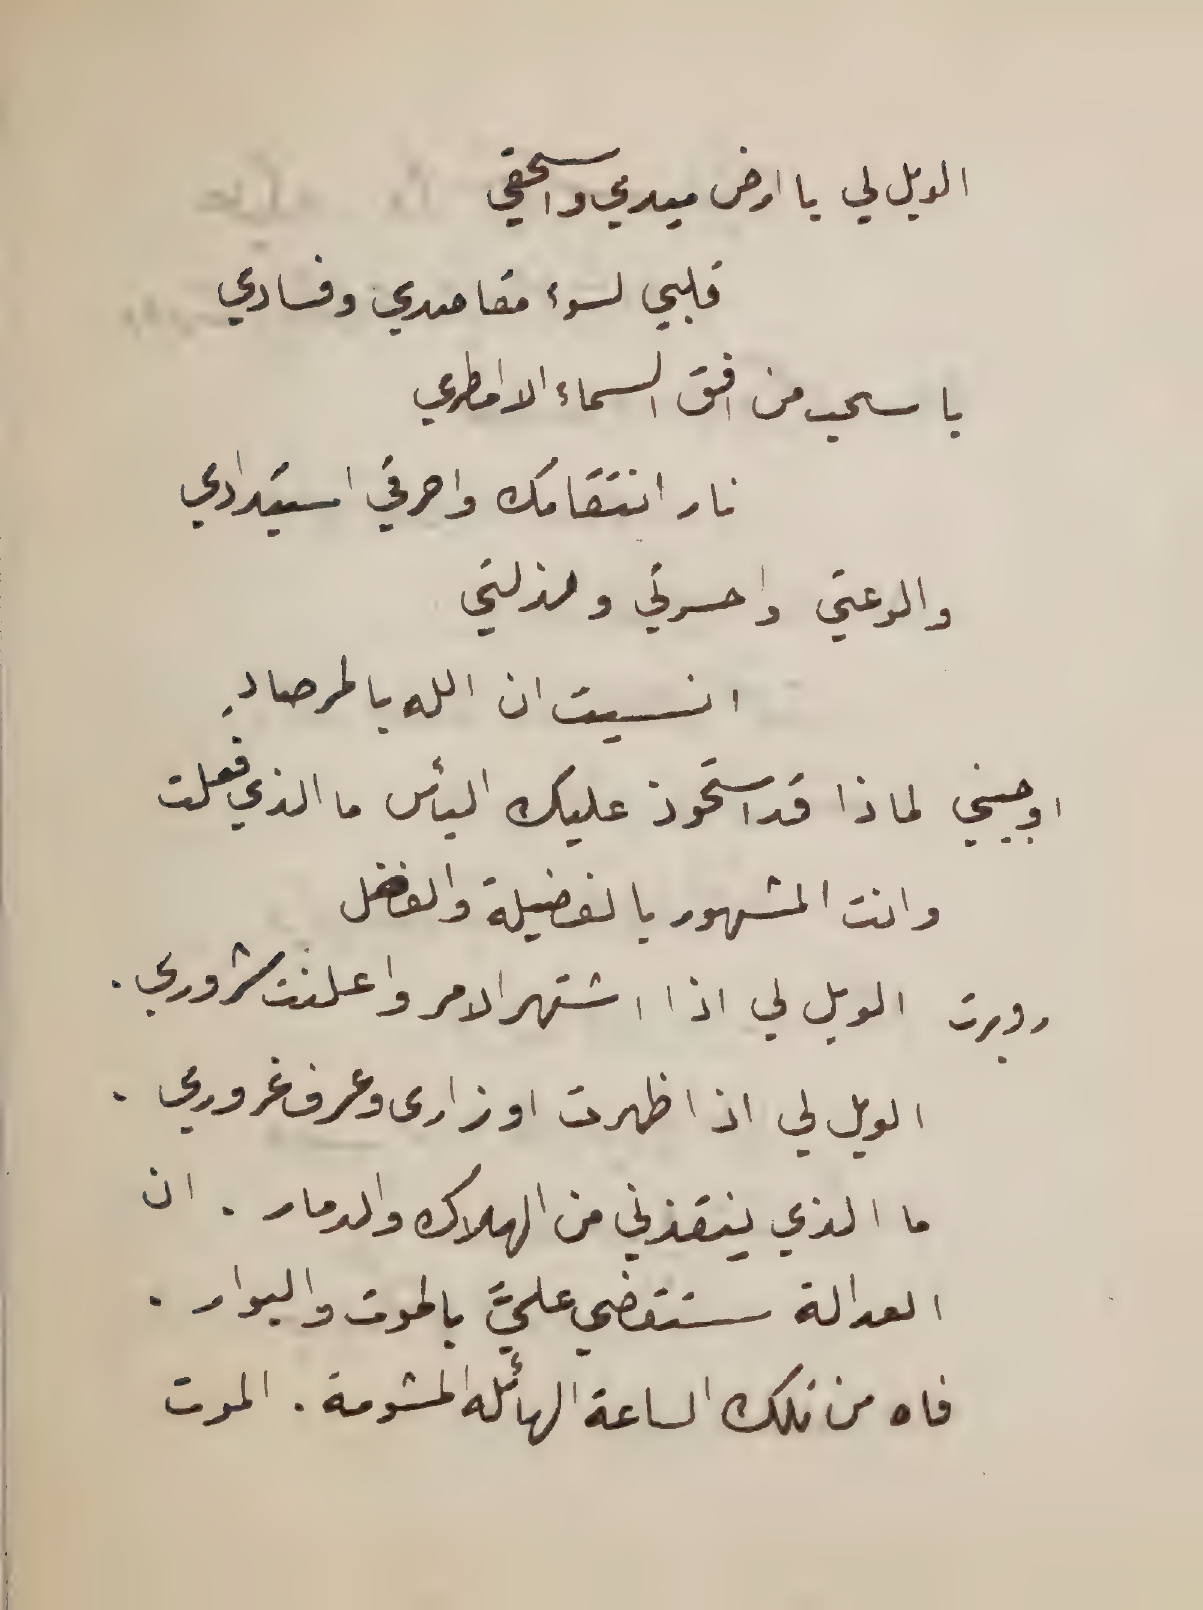 الويل لي يا ارض ميدي واسحقي
قلبي لسوء مقاصدي وفسادي
يا سحب من افق السماء الا امطري
نار انتقامك واحرقي استبدادي
والوعتي واحسرتي ومذلتي
انسيت ان الله بالمرصادِ
اوجيني لماذا قد استحوذ عليك اليأس ما الذي فعلت
وانت المشهور بالفضيلة والفضل
روبرت الويل لي اذا اشتهر الامر واعلنت شروري .
الويل لي اذا ظهرت اوزارى وعرف غروري .
ما الذي ينقذني من الهلاك والدمار . ان
العدالة ستقضي عليَّ بالموت والبوار .
فاه من تلك الساعة الهائله المشومة . الموت